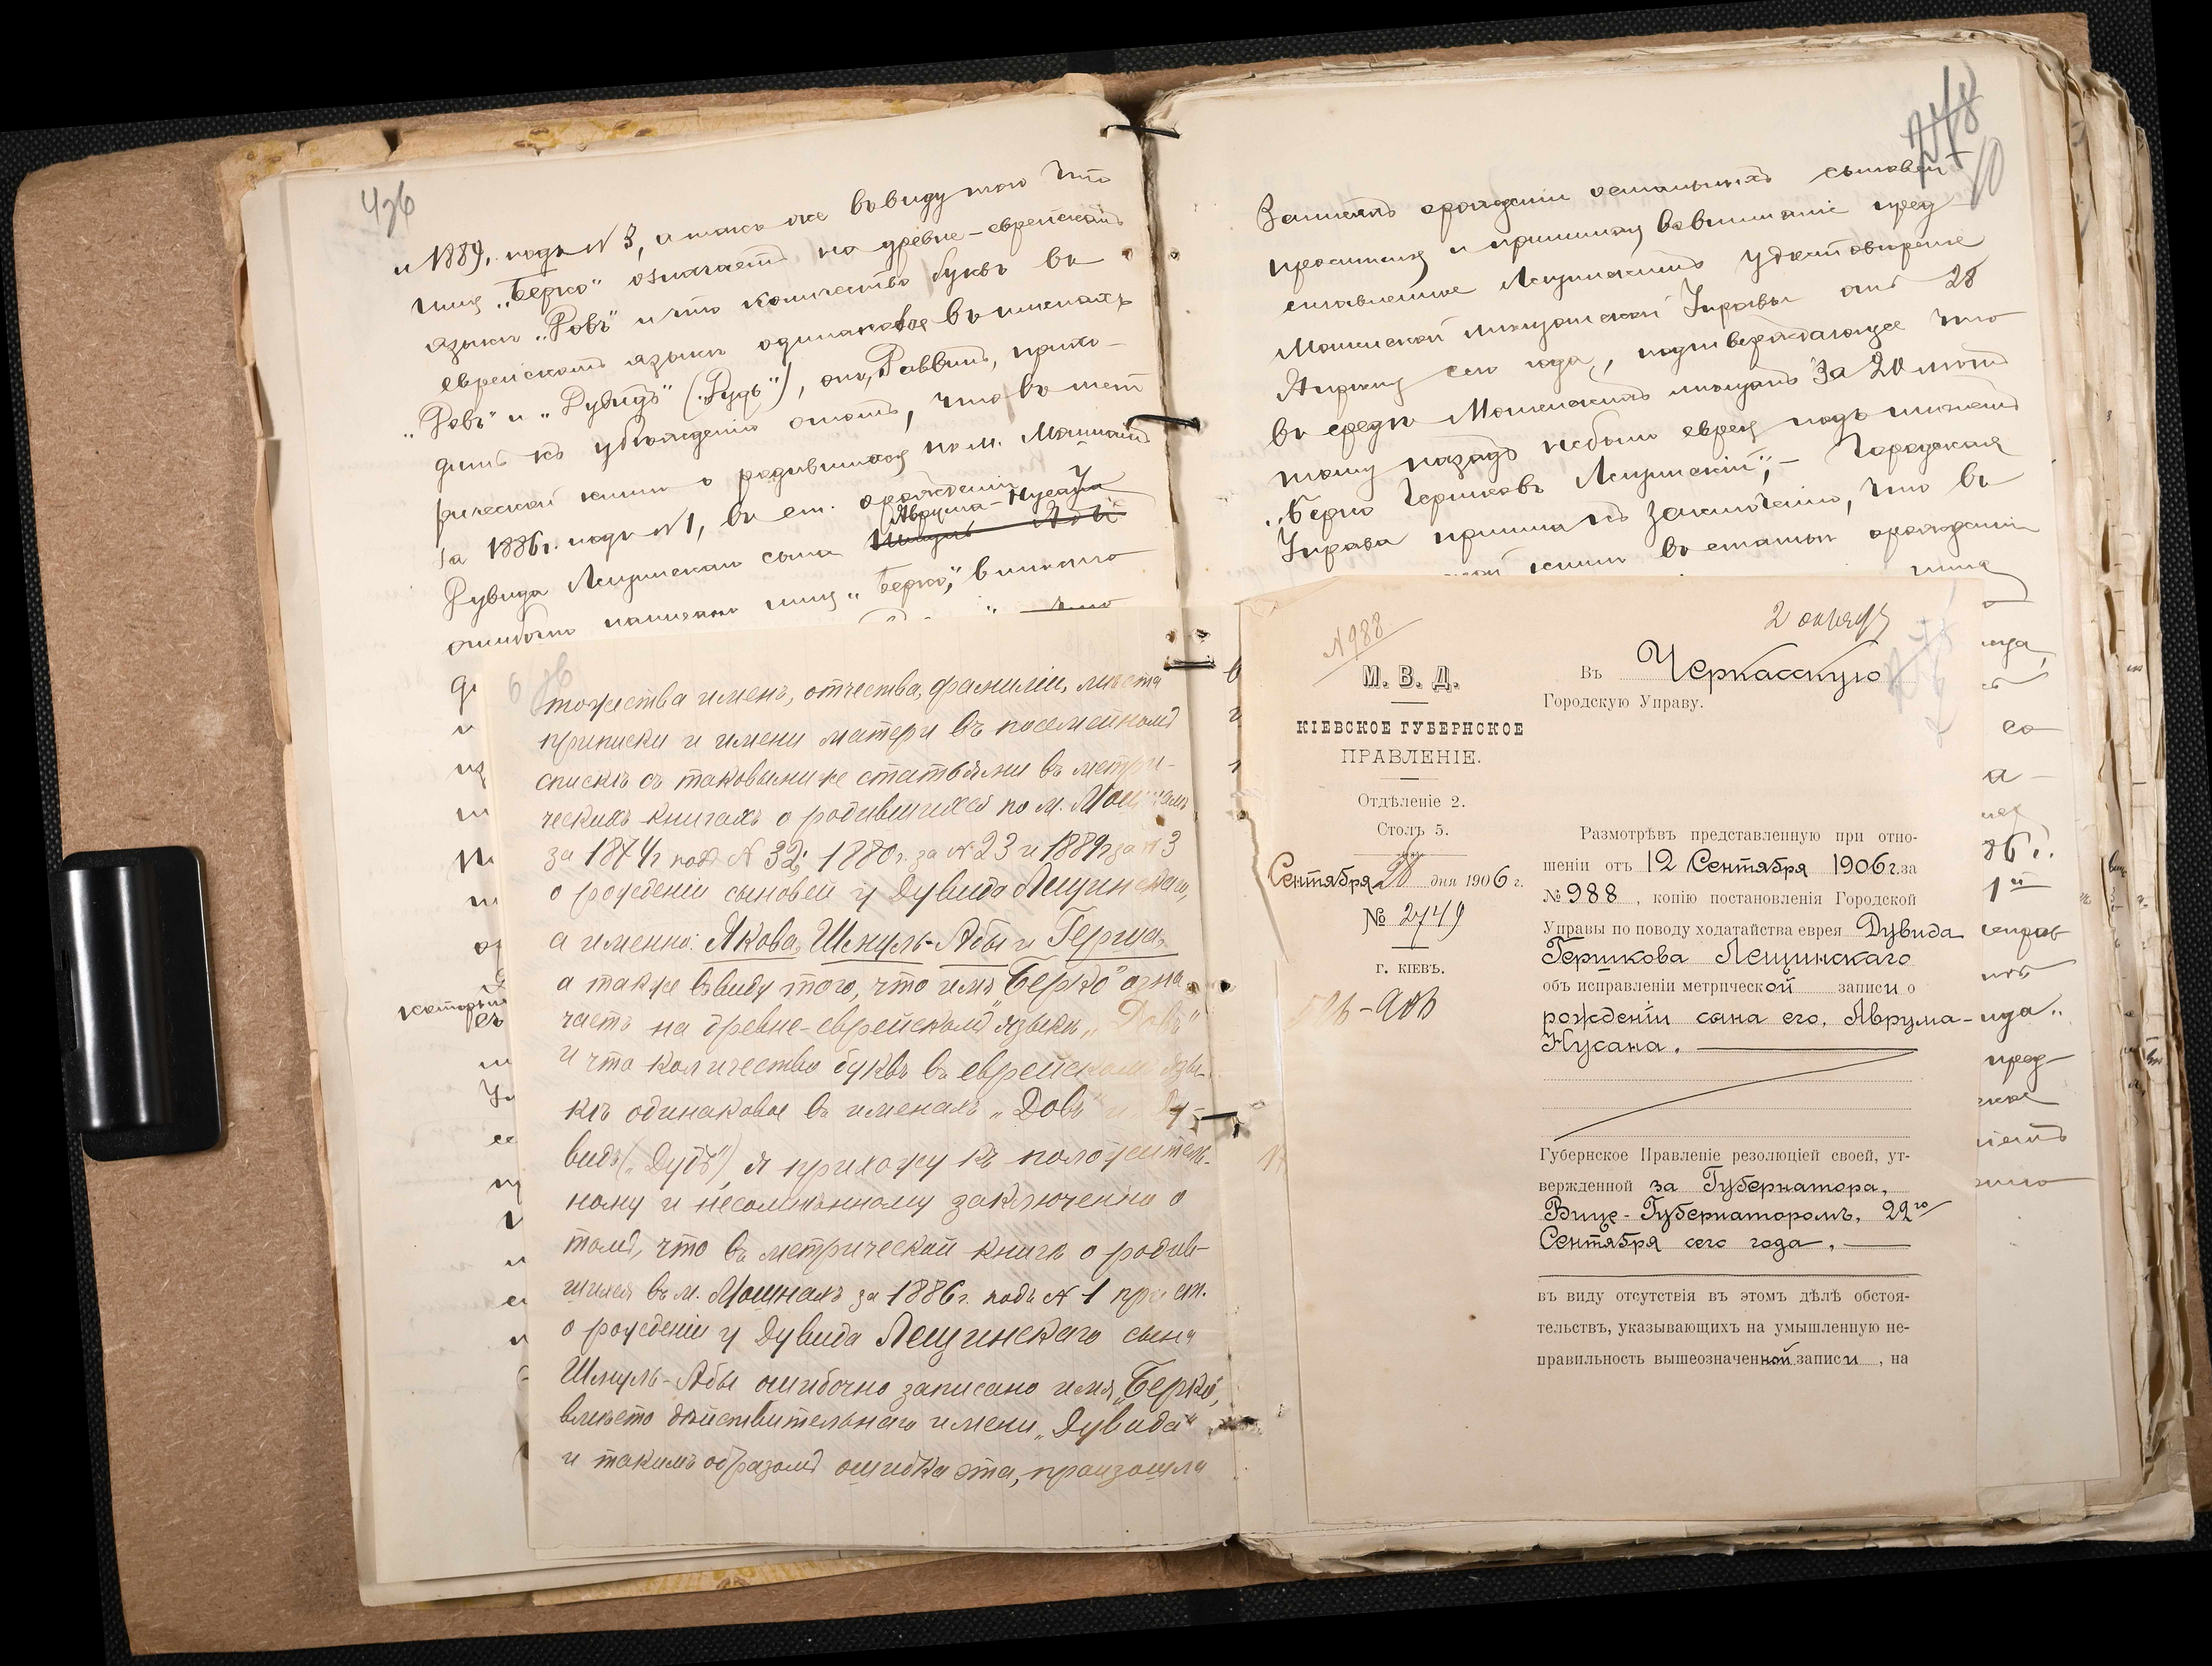 426
и 1889, подъ № 3, а такъ же въ виду того что
имя „Берко" означаетъ на древне-еврейскомъ
языкѣ „Довъ" и что количество буквъ въ
еврейскомъ языкѣ одинаковое въ именахъ
„Довъ" и „Дувидъ" („Дудъ"), онъ, Раввинъ, прихо-
дитъ къ убѣжденію отомъ, что въ мет
рической книгѣ о родившихся по м. Мошнамъ
за 1886 г. подъ № 1, въ ст. о рожденіи
Аврума-Нусана
Дувида Лещинскаго сына
ошибочно написано имя „Берко", вмѣсто
который
тожества именъ, отчества, фамиліи, мѣста
приписки и имени матери въ посемейномъ
спискѣ съ таковыми же статьями въ метри-
ческихъ книгахъ о родившихся по м. Мошнамъ
за 1874 г подъ № 32, 1880 г. за № 23 и 1889 г за № 3
о рожденіи сыновей у Дувида Лещинскаго,
а именно: Якова, Шмуль-Абы и Герша,
а также въ виду того, что имя „Берко" озна-
чаетъ на древне-еврейскомъ языкѣ „Довъ"
и что количество буквъ въ еврейскомъ язы-
кѣ одинаковое въ именахъ „Довъ" и „Ду-
видъ („Дудъ"), я прихожу къ положитель-
ному и несомнѣнному заключенію о
томъ, что въ метрической книгѣ о родив-
шихся въ м. Мошнахъ за 1886 г. подъ № 1 при ст.
о рожденіи у Дувида Лещинскаго сына
Шмуль-Абы ошибочно записано имя „Берко",
вмѣсто дѣйствительнаго имени „Дувида"
и такимъ образомъ ошибка эта, произошла
248
10
Записяхъ о рожденіи остальныхъ сыновей
просителя и принимая во вниманіе пред
ставленное Лещинскимъ удостовѣреніе
Мошенской мѣщанской Управы отъ 28
Апрѣля сего года, подтверждающее что
въ средѣ Мошенскихъ мѣщанъ за 20 лѣтъ
тому назадъ не было еврея подъ именемъ
„Берко Гершковъ Лещинскій", - Городская
Управа пришла къ заключенію, что въ
книгѣ въ статьѣ о рожденіи
№ 988
2 октября
М. В. Д.
КІЕВСКОЕ ГУБЕРНСКОЕ
ПРАВЛЕНІЕ.
Отдѣленіе 2.
Столъ 5.
Сентября 28 дня 1906 г.
№ 2749
г. КІЕВЪ.
Въ Черкасскую
Городскую Управу.
Размотрѣвъ представленную при отно-
шеніи отъ 12 Сентября 1906 г. за
№ 988, копію постановленія Городской
Управы по поводу ходатайства еврея Дувида
Гершкова Лещинскаго
объ исправленіи метрической записи о
рожденіи сына его, Аврума-
Нусана.
Губернское Правленіе резолюціей своей, ут-
вержденной за Губернатора,
Вице-Губернаторомъ, 22го
Сентября сего года,
въ виду отсутствія въ этомъ дѣлѣ обстоя-
тельствъ, указывающихъ на умышленную не-
правильность вышеозначенной записи, на